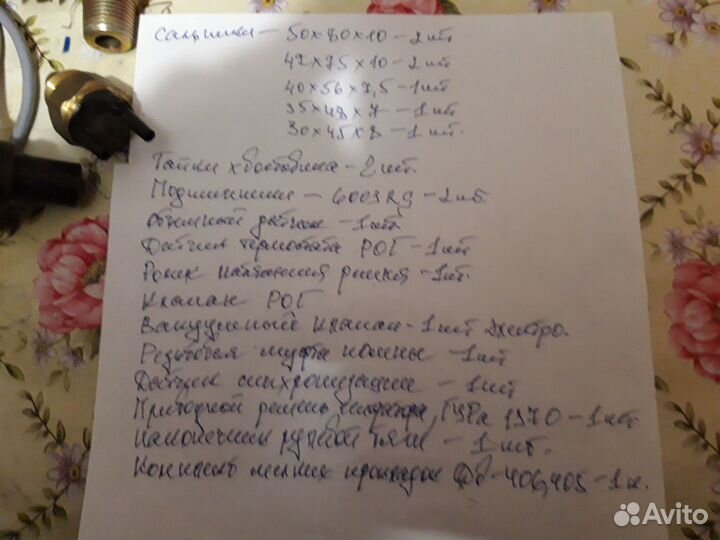 Сальники – 50×80×10 – 2 шт
42×75×10 – 2 шт
40×56×7,5 – 1 шт
35×48×7 – 1 шт
30×45×8 – 1 шт.
Гайки хвостовика – 2 шт.
Подшипники – 6003RS – 2 шт
датчик – 1 шт
Датчик термостата РОГ – 1 шт
Ролик натяжения ремня – 1 шт.
Клапан РОГ
Вакуумный клапан – 1 шт электро.
Резьбовая муфта – 1 шт
Датчик синхронизации – 1 шт
Приводной ремень ГУРа 1370 – 1 шт
Наконечник рулевой тяги – 1 шт.
Комплект мелких прокладок Дв – 406,405 – 1 к.
Avito